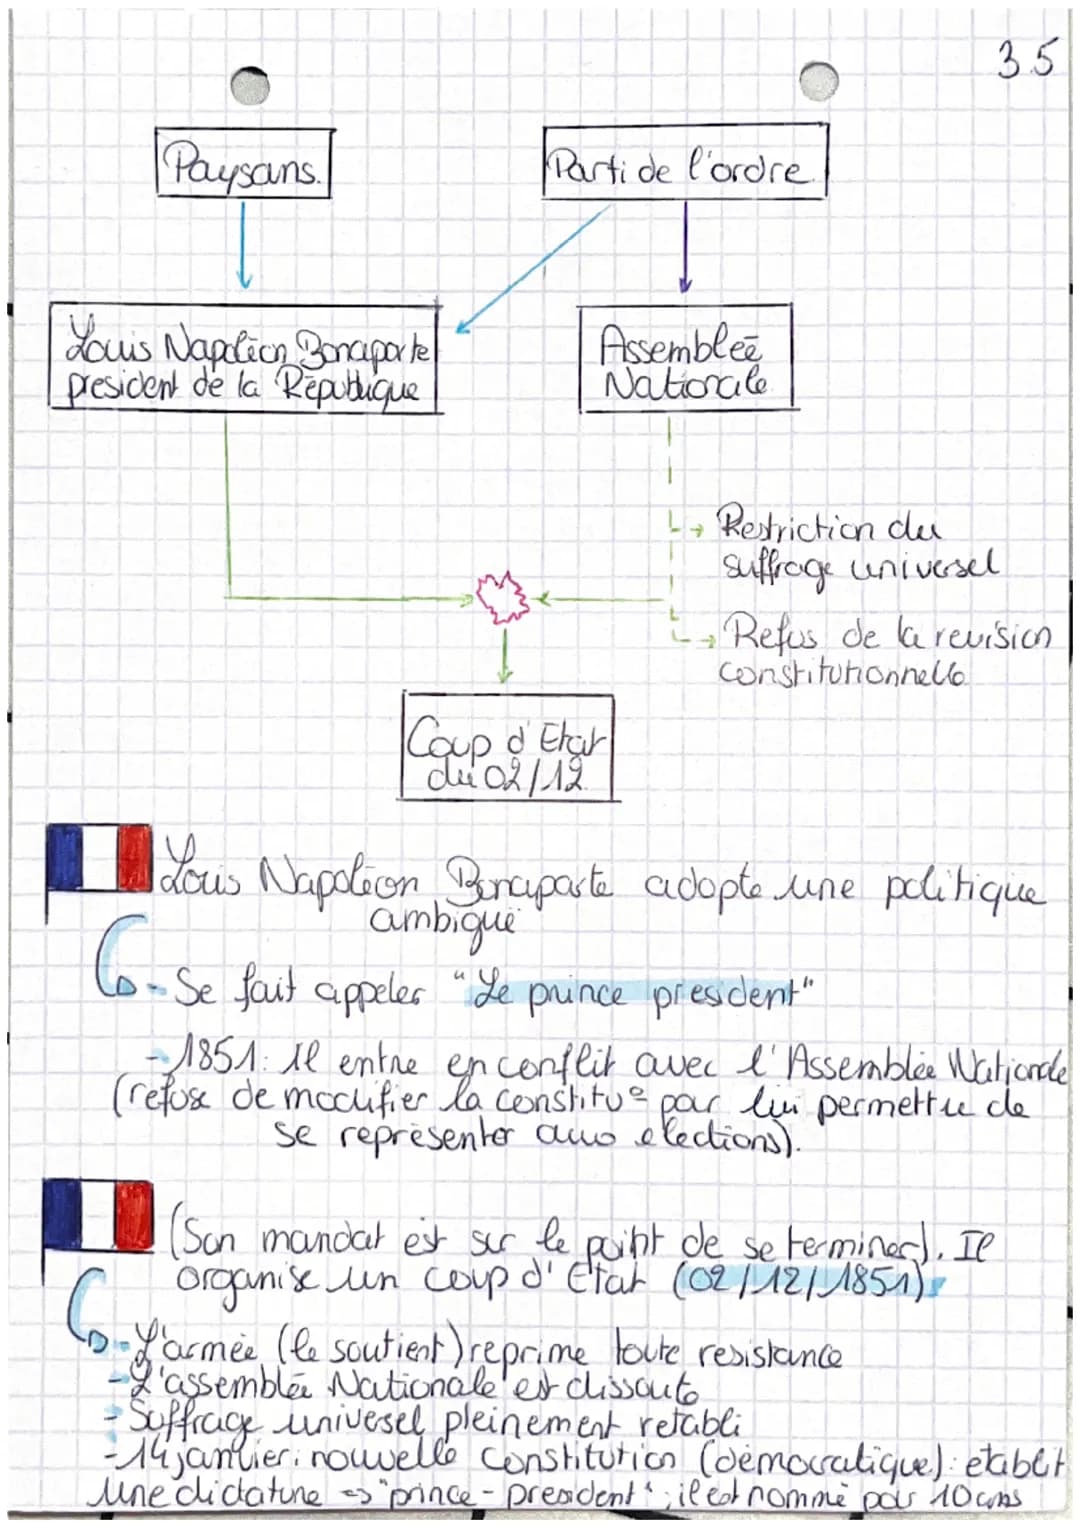 3.5
Paysans.
Parti de l'ordre
Louis Napoléon Bonaparte
president de la République
Assembleé
Nationale
Restriction du
suffrage universel
Refus de la revision
constitutionnelle
Coup d'Etat
du 02/12
Louis Napoléon Bonaparte adopte une politique
ambiguë
- Se fait appeler "Le prince president"
- 1851: Il entre en conflit avec l'Assemblée Nationale
(refuse de modifier la constitu° par lui permettre de
se représenter aux elections).
(Son mandat est sur le point de se terminer). Il
organise un coup d'Etat (02/12/1851)
- L'armée (le soutient) reprime toute resistance
- L'assemblée Nationale est dissoute
- Suffrage universel pleinement retabli
- 14 janvier: nouvelle constitution (démocratique): etablit
une dictature => "prince-president"; il est nommé pour 10 ans